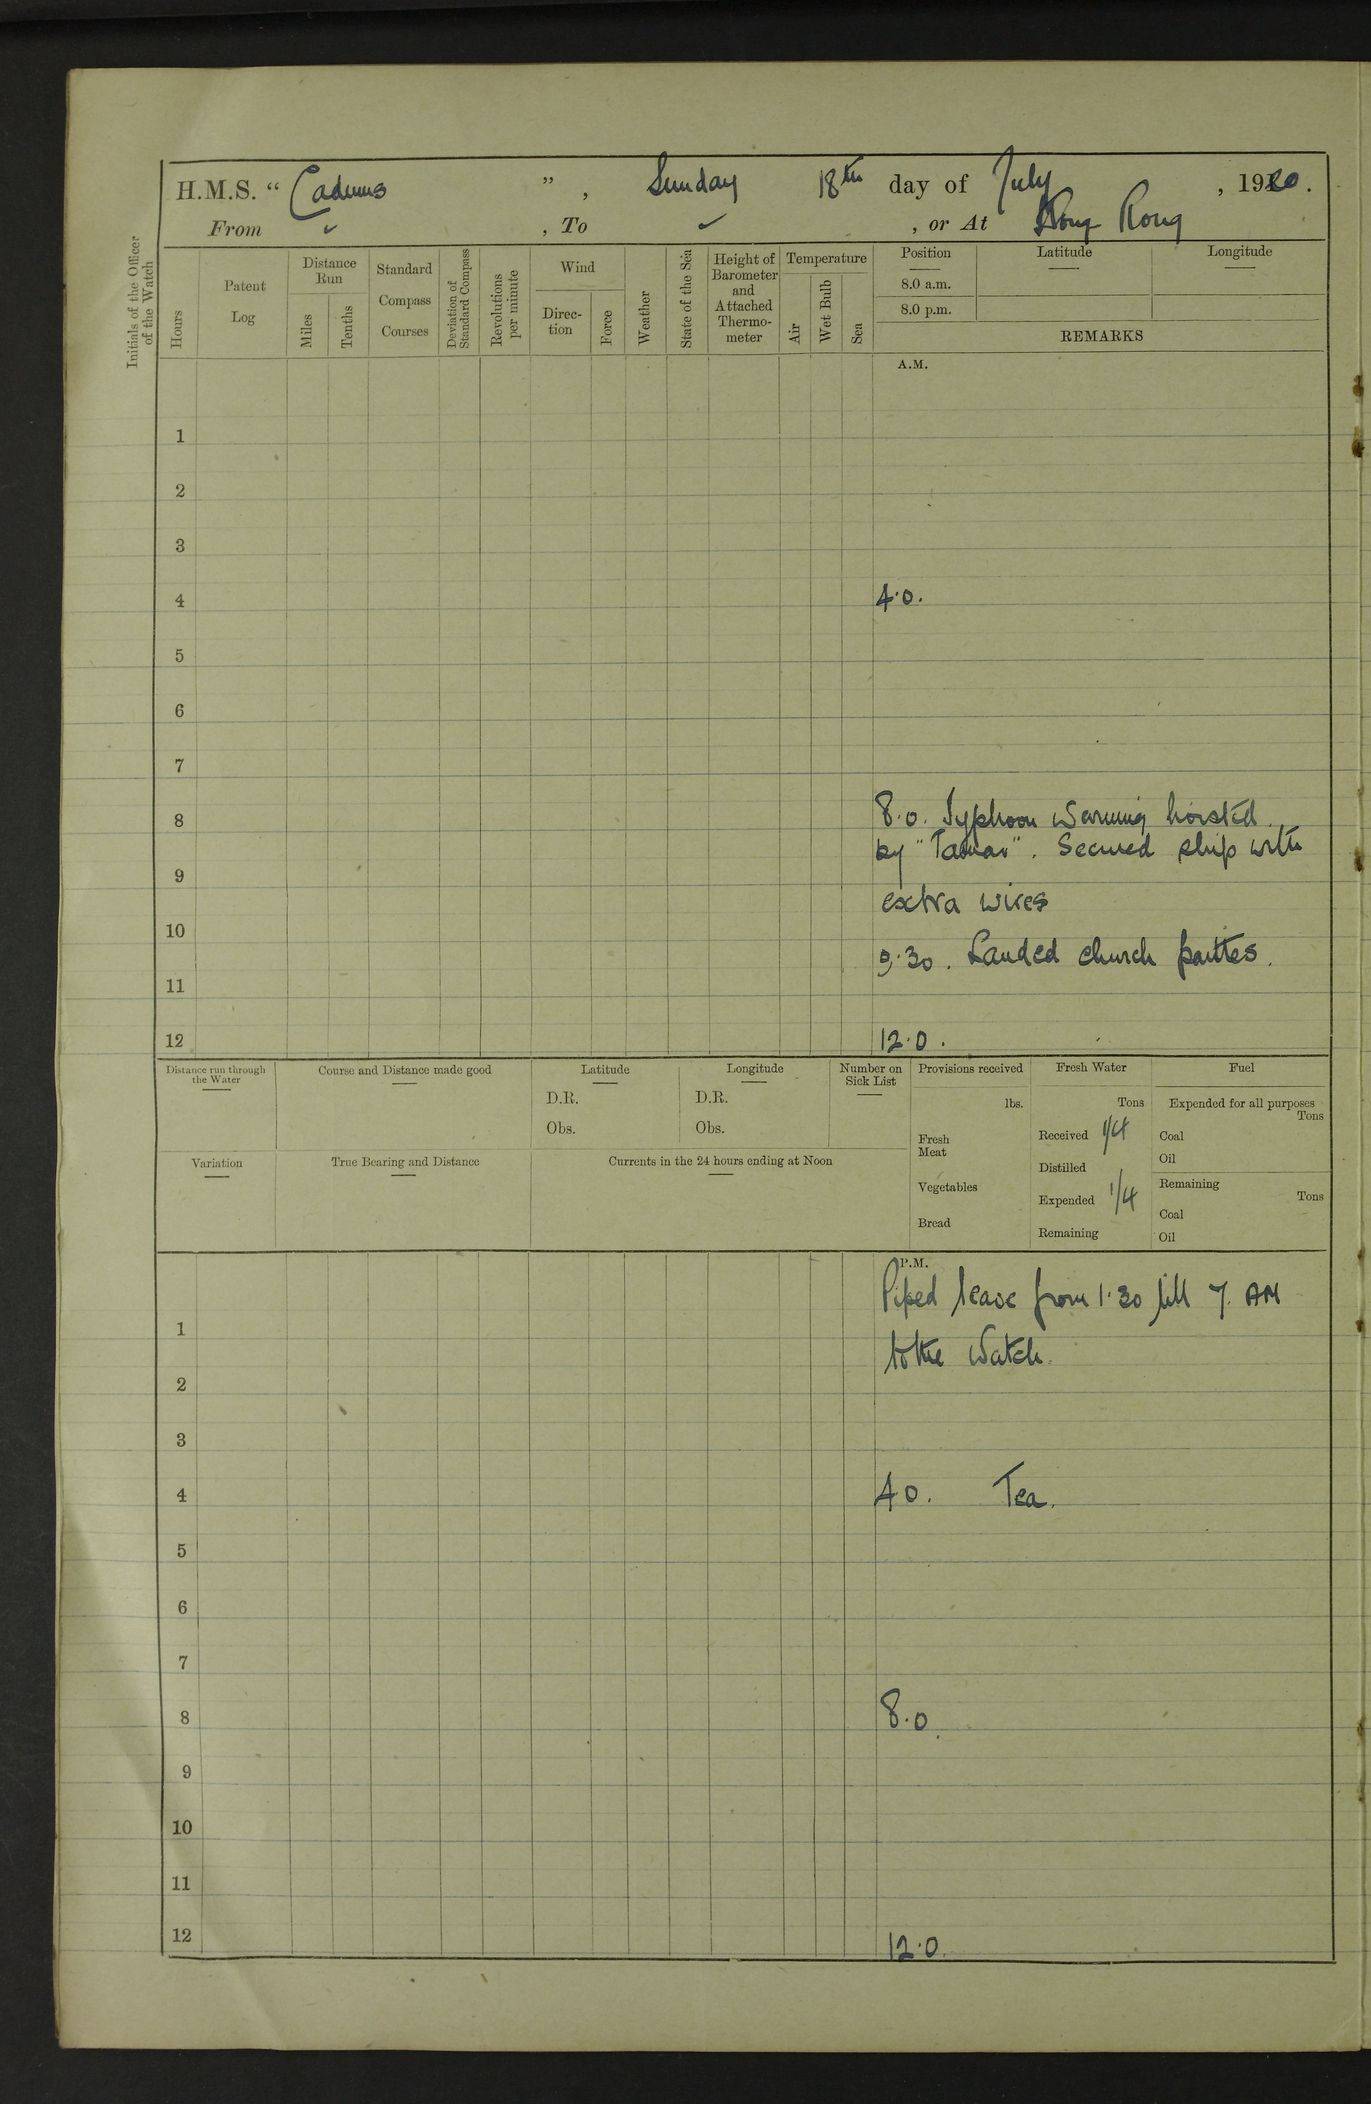 H.M.S. “ Cadmus ” , Sunday 18th day of July , 1920 .
From ✓ , To ✓ , or At Hong Kong
Initials of the Officer of the Watch
Hours
Patent Log
Distance Run
Miles
Tenths
Standard Compass Courses
Deviation of Standard Compass
Revolutions per minute
Wind
Direc-tion
Force
Weather
State of the Sea
Height of Barometer and Attached Thermo-meter
Temperature
Air
Wet Bulb
Sea
Position Latitude Longitude
8.0 a.m.
8.0 p.m.
REMARKS
A.M.
1
2
3
4 4.0.
5
6
7
8 8.0. Typhoon Warning hoisted
by "Tamar". Secured ship with
9
extra wires
10
9.30. Landed church parties.
11
12 12.0.
Distance run through the Water
Course and Distance made good
Latitude
D.R.
Obs.
Longitude
D.R.
Obs.
Number on Sick List
Variation
True Bearing and Distance
Currents in the 24 hours ending at Noon
Provisions received
lbs.
Fresh Meat
Vegetables
Bread
Fresh Water
Tons
Received 1/4
Distilled
Expended 1/4
Remaining
Fuel
Expended for all purposes
Tons
Coal
Oil
Remaining
Tons
Coal
Oil
P.M.
Piped leave from 1.30 till 7. AM
1
to the Watch.
2
3
4 4 0. Tea.
5
6
7
8 8.0
9
10
11
12 12.0.